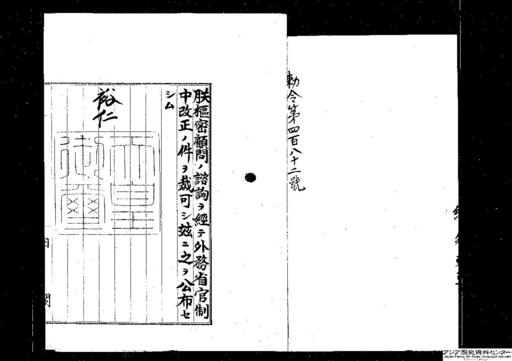 勅令第四百八十二號
朕樞密顧問ノ諮詢ヲ經テ外務省官制
中改正ノ件ヲ裁可シ玆ニ之ヲ公布セ
シム
裕仁
天皇
御璽
内閣
アジア歴史資料センター